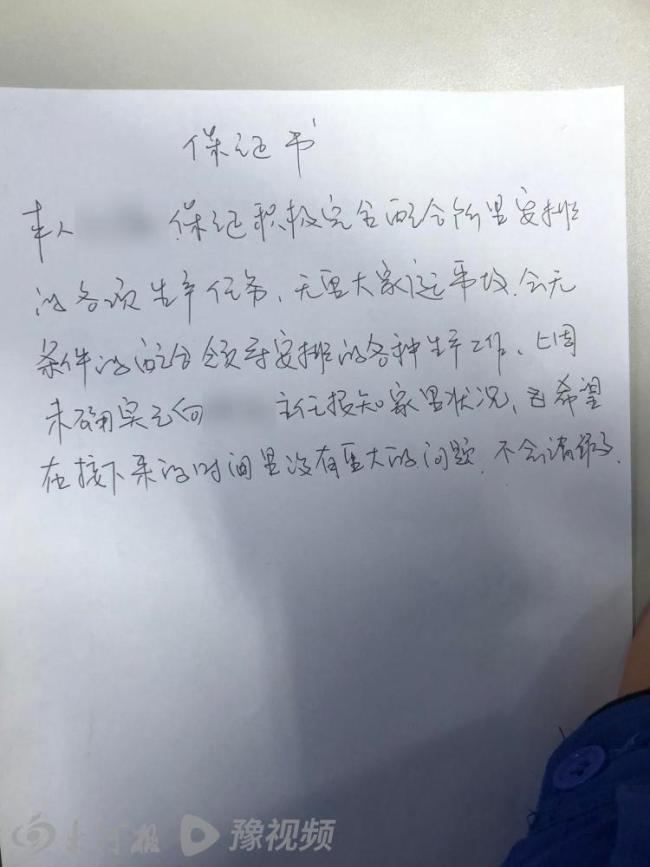 保证书
本人 保证积极完全配合所里安排
的各项生产任务,无重大家庭事故.会无
条件的配合领导安排的各种生产工作、上周
末确实已向 主任报知家里状况,也希望
在接下来的时间里没有重大的问题.不会请假了.
大河报 豫视频